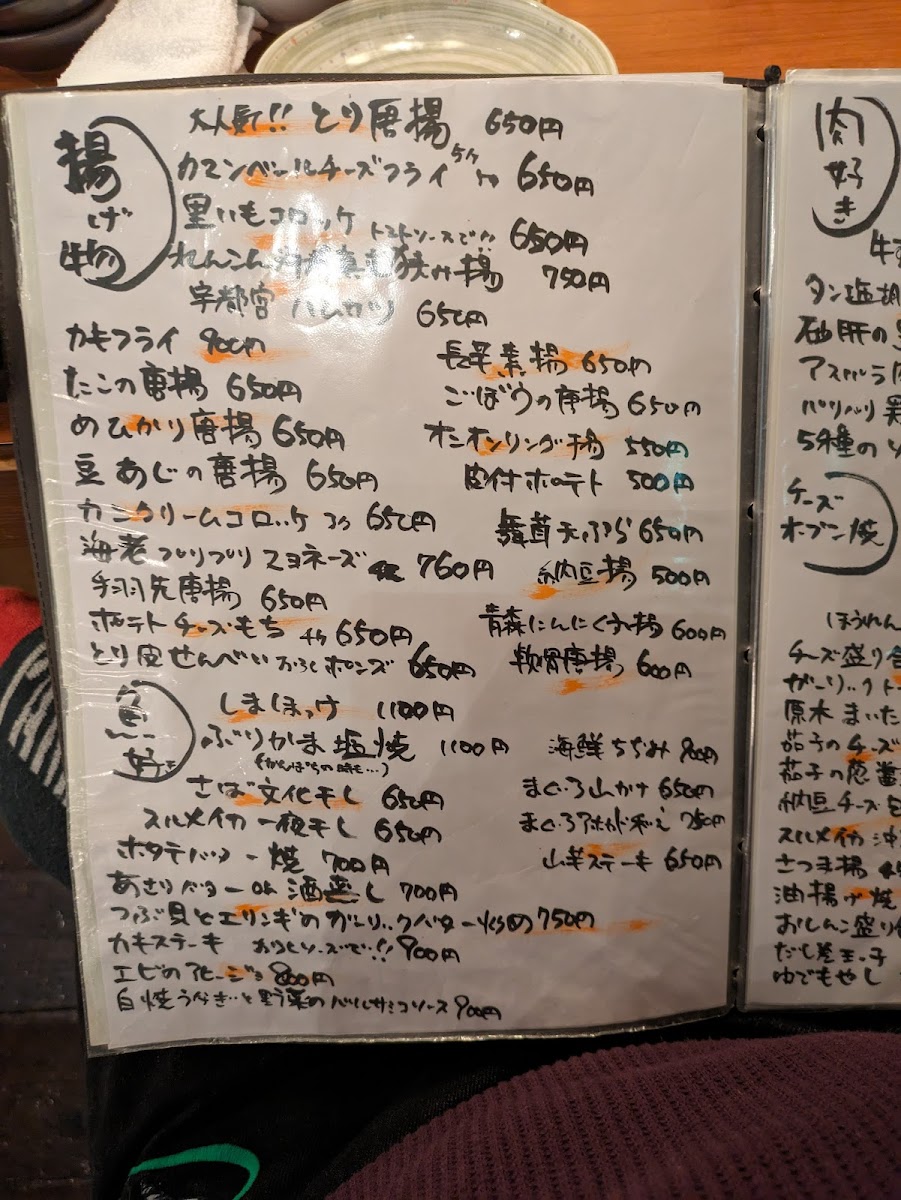 揚げ物
大人気!! とり唐揚 650円
カマンベールチーズフライ 5ケ 650円
里いもコロッケ トマトソースで!! 650円
れんこん 狭み揚 750円
宇都宮 ハムカツ 650円
カキフライ 900円
たこの唐揚 650円
めひかり唐揚 650円
豆あじの唐揚 650円
カニクリームコロッケ 650円
海老プリプリマヨネーズ 760円
手羽先唐揚 650円
ポテトチーズもち 4ケ 650円
とり皮せんべい おろしポンズ 650円
長芋素揚 650円
ごぼうの唐揚 650円
オニオンリング揚 550円
皮付ポテト 500円
舞茸天ぷら 650円
納豆揚 500円
青森にんにく揚 600円
軟骨唐揚 600円
魚好き
しまほっけ 1100円
ぶりかま塩焼 1100円
(かんぱちの時も…)
さば文化干し 650円
スルメイカ一夜干し 650円
ホタテバター焼 700円
あさりバター or 酒蒸し 700円
つぶ貝とエリンギのガーリックバター炒め 750円
カキステーキ おろしソースで!! 900円
エビのアヒージョ 800円
白焼うなぎと野菜のバルサミコソース 900円
海鮮ちぢみ 900円
まぐろ山かけ 650円
まぐろアボカド和え 750円
山芋ステーキ 650円
肉好き
タン塩
砂肝の
アスパラ
パリパリ
5種の
チーズオーブン焼
ほうれん
チーズ盛り合
ガーリックトー
原木まいた
茄子のチーズ
茄子の
納豆チーズ
スルメイカ
さつま揚
油揚げ焼
おしんこ盛り
だし巻玉子
ゆでもやし